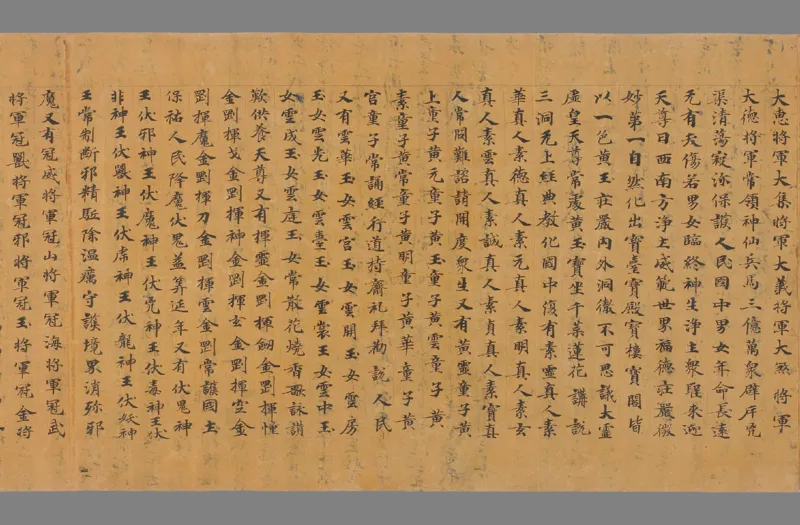 大惠將軍大集將軍大義將軍大熙將軍
大德將軍常領神仙兵馬三億萬衆辟斥兇
渠清蕩寇渁保護人民國中男女年命長遠
元有夭傷若男女臨終神生淨土衆聖來迎
天尊曰西南方淨土威範世界福德莊嚴微
妙第一自然化出寶臺寶殿寶樓寶閣皆
以一色黃玉莊嚴内外洞徹不可思議大靈
虛皇天尊常處黃玉寶坐千葉蓮花講説
三洞无上經典教化國中復有素靈真人素
華真人素德真人素元真人素明真人素玄
真人素雲真人素誠真人素貞真人素寶真
人常問難諮請開度衆生又有黃靈童子黃
上童子黃元童子黃玉童子黃雲童子黃
素童子黃常童子黃明童子黃華童子黃
宮童子常誦經行道持齋礼拜勸説人民
又有雲華玉女雲宮玉女雲開玉女雲房
玉女雲光玉女雲臺玉女雲裳玉女雲中玉
女雲成玉女雲産玉女常散花燒香歌詠讃
歎供養天尊又有揮靈金剛揮劒金剛揮幢
金剛揮戈金剛揮神金剛揮玄金剛揮空金
剛揮魔金剛揮刀金剛揮雲金剛常護國土
保祐人民降魔伏鬼益筭延年又有伏鬼神
王伏邪神王伏魔神王伏兇神王伏毒神王伏
非神王伏龑神王伏席神王伏龍神王伏妖神
王常制斷邪精駈除温癘守護境界消弥邪
魔又有冠威將軍冠山將軍冠海將軍冠武
將軍冠龑將軍冠邪將軍冠玉將軍冠金將